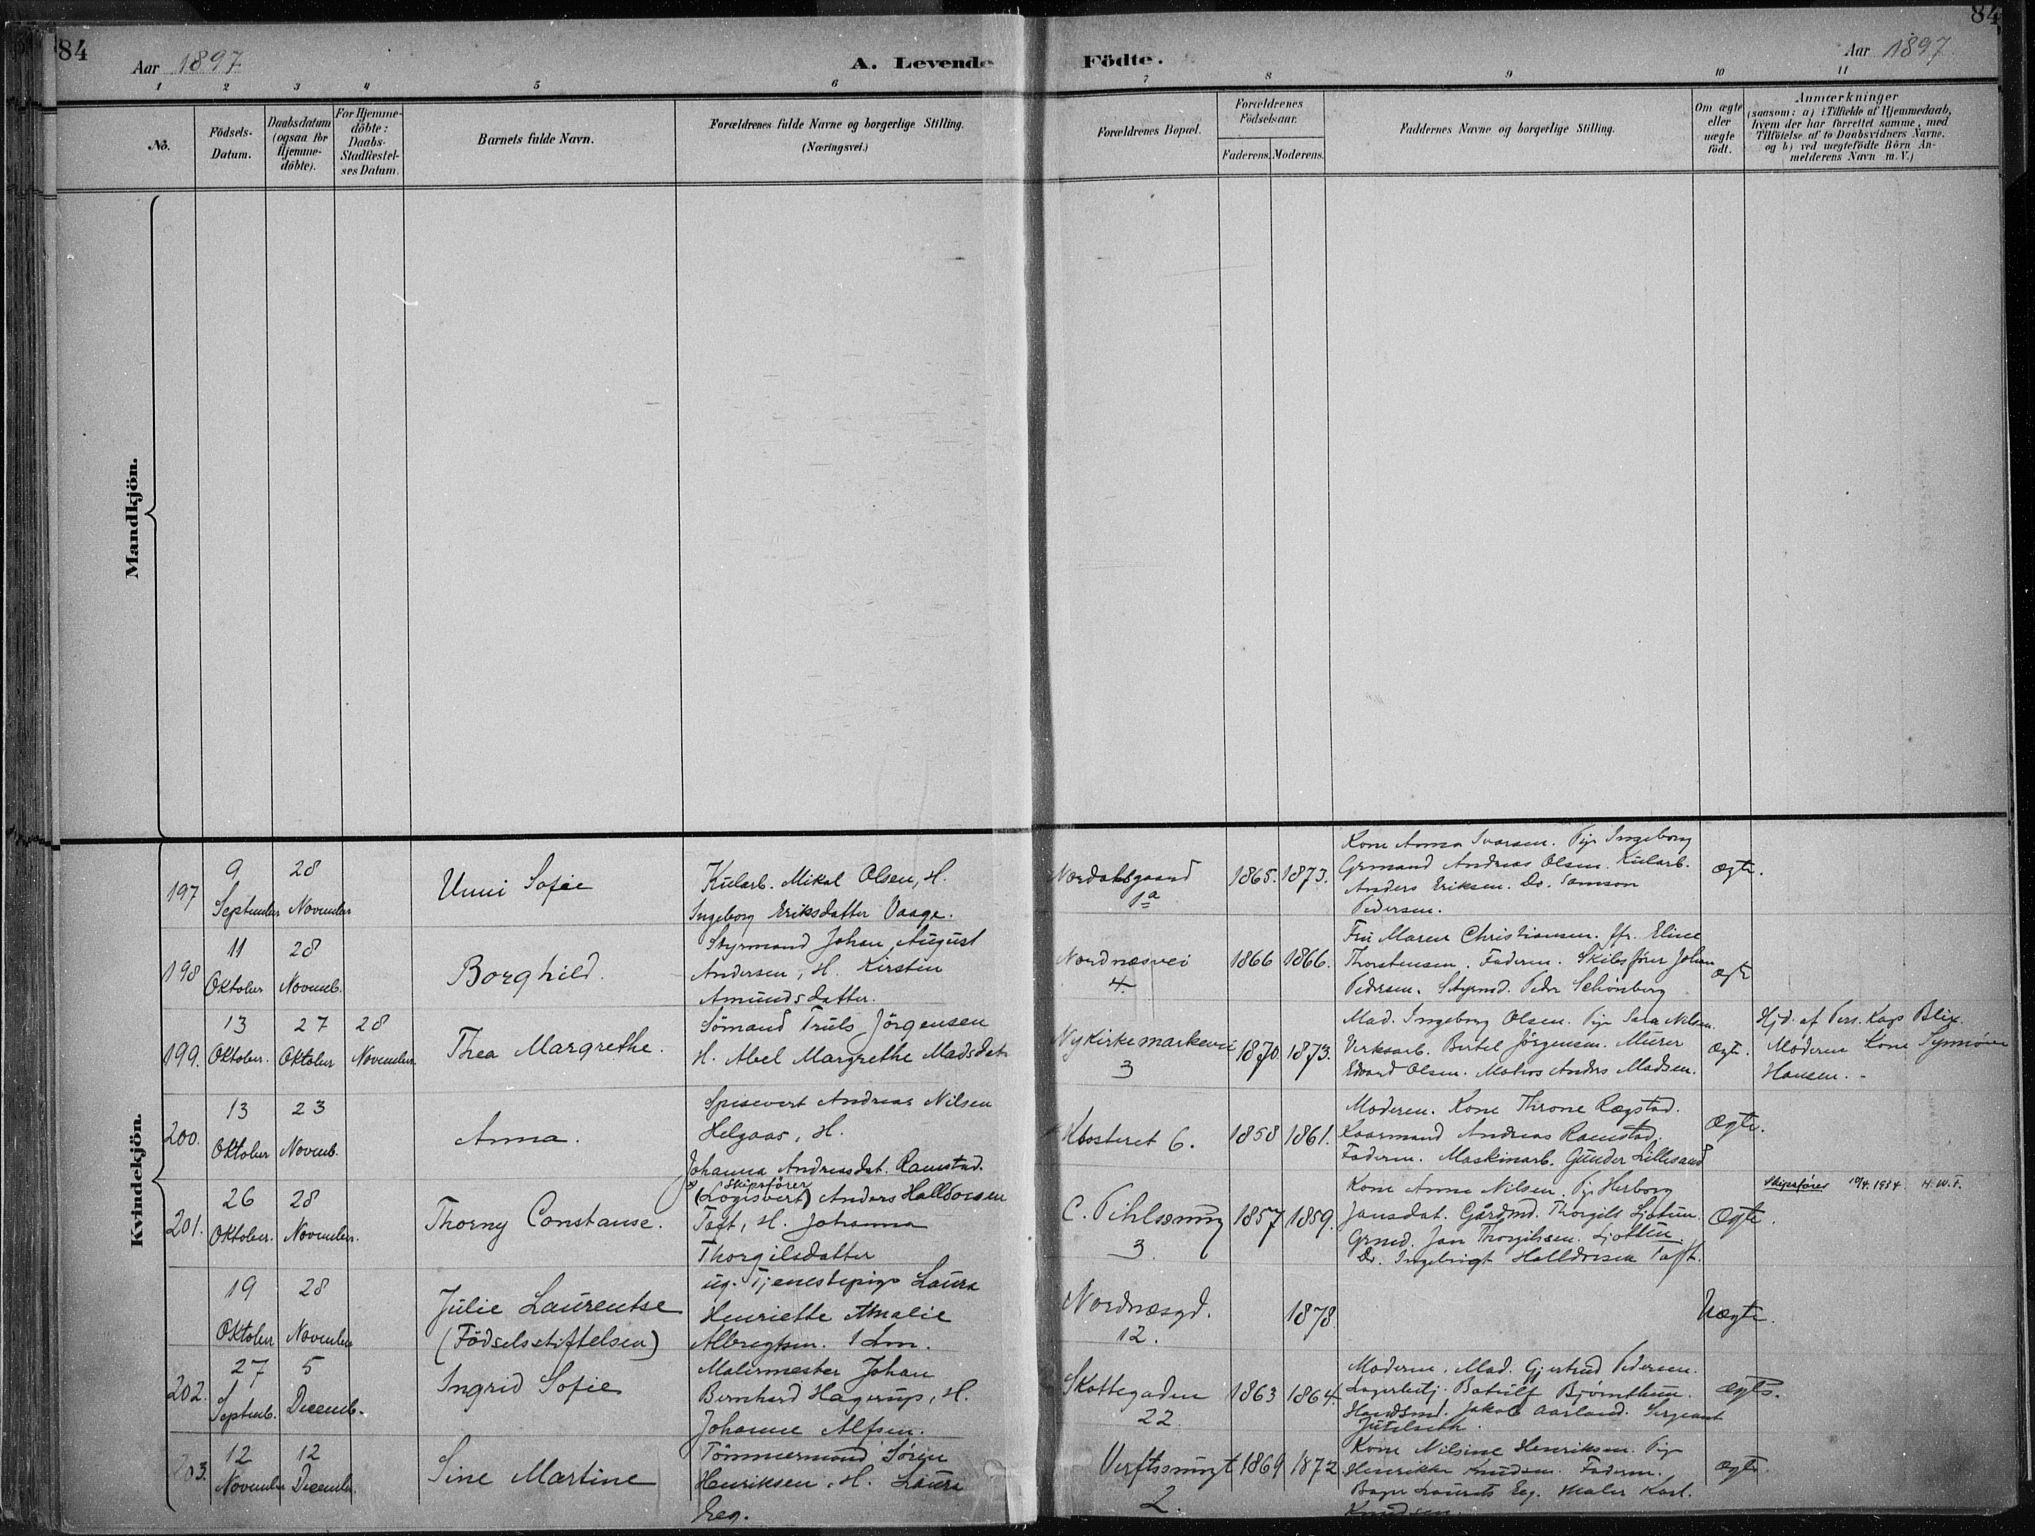 84
Aar 1897
A. Levende Födte.
Aar 1897
84
1 2 3 4 5 6 7 8 9 10 11
No.
Födsels-Datum.
Daabsdatum (ogsaa for Hjemme-döbte).
For Hjemme-döbte: Daabs-Stadfæstel-ses Datum.
Barnets fulde Navn.
Forældrenes fulde Navne og borgerlige Stilling.
(Næringsvei.)
Forældrenes Bopæl.
Forældrenes Födselsaar.
Faderens. Moderens.
Faddernes Navne og borgerlige Stilling.
Om ægte eller uægte födt.
Anmærkninger
(saasom: a) i Tilfælde af Hjemmedaab,
hvem der har forrettet samme, med
Tilföielse af to Daabsvidners Navne.
og b) ved uægtefödte Börn An-
melderens Navn m. V.)
Mandkjön.
Kvindekjön.
197
9 September
28 November
Unni Sofie
Kularb. Mikal Olsen, H.
Ingeborg Eriksdatter Vaage.
Nordahlsgaard
1a
1865. 1873.
Kone Anna Ivarsen. Pige Ingeborg
Grmand Andreas Olsen. Kularb.
Anders Eriksen. Do. Samson
Pedersen.
Ægte.
198
11 Oktober
28 Novemb.
Borghild.
Styrmand Johan August
Andersen, H. Kirsten
Amundsdatter.
Nordnæsvei
4.
1866 1866.
Fru Maren Christiansen. Eline
Thorstensen. Faderen. Skibsfører Johan
Pedersen. Styrmd. Peder Schönberg
Ægte
199.
13 Oktober.
27 Oktober
28 November.
Thea Margrethe.
Sömand Truls Jörgensen
H. Abel Margrethe Madsdat.
Nykirkemarkevei
3
1870. 1873.
Mad. Ingeborg Olsen. Pige Sara Nilsen.
Verksarb. Bertel Jörgensen. Murer
Edvard Olsen. Matros Anders Madsen.
Ægte.
Hjd. af Pers. Kap. Blix
Moderen Kone Synnöve
Hansen. -
200.
13 Oktober
23 Novemb.
Anna.
Spisevert Andreas Nilsen
Helgaas, H.
Johanna Andreasdat. Ramstad.
Klosteret 6.
1858 1861.
Moderen. Kone Throne Rægstad.
Kaarmand Andreas Ramstad.
Faderen. Maskinarb. Gunder Lillesand
Ægte.
201.
26 Oktober.
28 November.
Thorny Constanse.
Skipsfører
(Logisvert) Anders Halldorsen
Toft, H. Johanna
Thorgilsdatter
C. Pihlssmug
3.
1857 1859.
Kone Anna Nilsen. Pige Herborg
Jansdat. Gårdmd. Thorgils Ljotun.
Grmd. Jan Thorgilsen. Ljottun.
Do. Ingebrigt Halldorsen Toft.
Ægte.
Skipsfører 10/4. 1934 H. W. T.
19 Oktober
28 November
Julie Laurentse
(Födselsstiftelsen)
ug. Tjenestepige Laura
Henriette Amalie
Albregtsen. 1 Lm.
Nordnæsgd.
12.
1878.
Uægte.
202.
27 Septemb.
5 Decemb.
Ingrid Sofie
Malermester Johan
Bernhard Hagerup, H.
Johanne Alfsen.
Skottegaden
22.
1863 1864.
Moderen. Mad. Gjertrud Pedersen.
Lagerbetj. Botolf Bjørnthun.
Handsmd. Jakob Aarland. Sergeant
Jutelseth.
Ægte.
203.
12 November
12 Decembr.
Sine Martine
Tömmermand Sören
Henriksen. H. Laura
Eeg.
Verftssmugt
2.
1869 1872
Kone Nilsine Henriksen. Pige
Henrikke Knudsen. Faderen.
Bager Laurits Eeg. Maler Karl.
Knudsen.
Ægte.